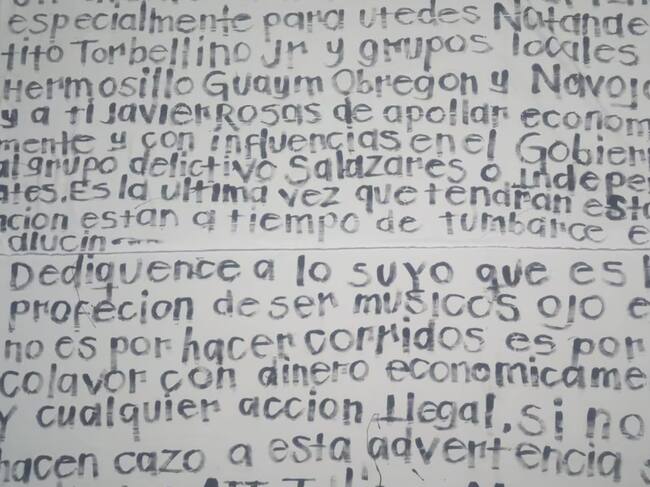 especialmente para utedes Natande
tito Torbellino Jr y grupos locales
Hermosillo Guaym Obregon y Navojo
y a ti Javier Rosas de apollar econom
mente y con influencias en el Gobier
al grupo delictivo Salazares o indepe
ates. Es la ultima vez que tendran esta
acion estan a tiempo de tumbarce e
alucin---
Dediquence a lo suyo que es l
profecion de ser musicos ojo e
no es por hacer corridos es por
colavor con dinero economicame
y cualquier accion Llegal, si no
hacen cazo a esta advertencia